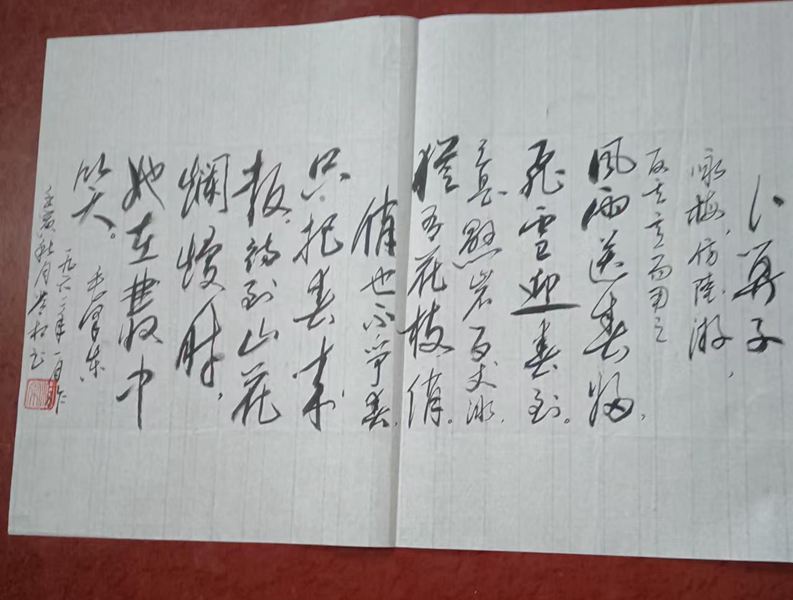 卜算子
咏梅,仿陆游,
反其意而用之
風雨送春归,
飛雪迎春到。
已是懸岩百丈冰,
猶有花枝俏。
俏也不争春,
只把春来
报。待到山花
爛熳时,
她在叢中
笑。
毛泽东
一九六 年 一月作
壬寅秋月 书